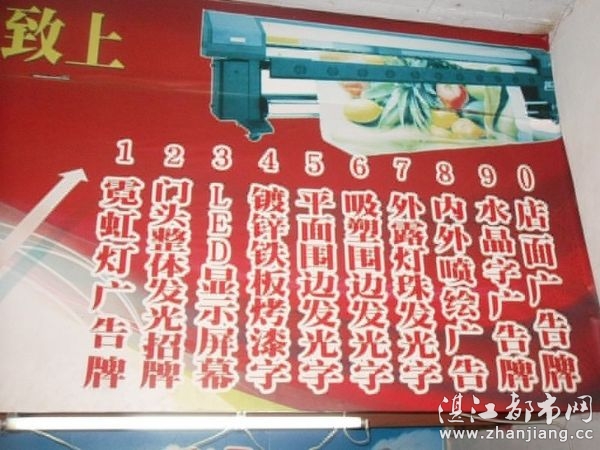 致上
1霓虹灯广告牌
2门头整体发光招牌
3LED显示屏幕
4镀锌铁板烤漆字
5平面围边发光字
6吸塑围边发光字
7外露灯珠发光字
8内外喷绘广告
9水晶字广告牌
0店面广告牌
湛江都市网
www.zhanjiang.cc